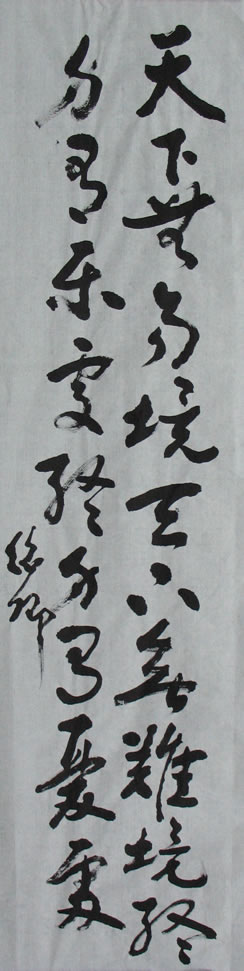 天下無易境天下無難境終
身有樂處終身有憂處